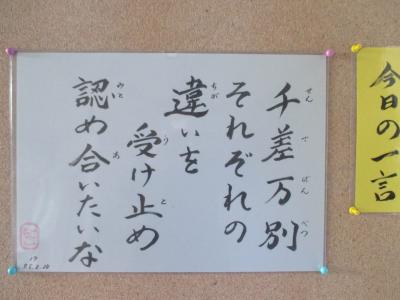 今日の一言
千差万別
せんさばんべつ
それぞれの
違いを
ちが
受け止め
うと
認め合いたいな
みとあ